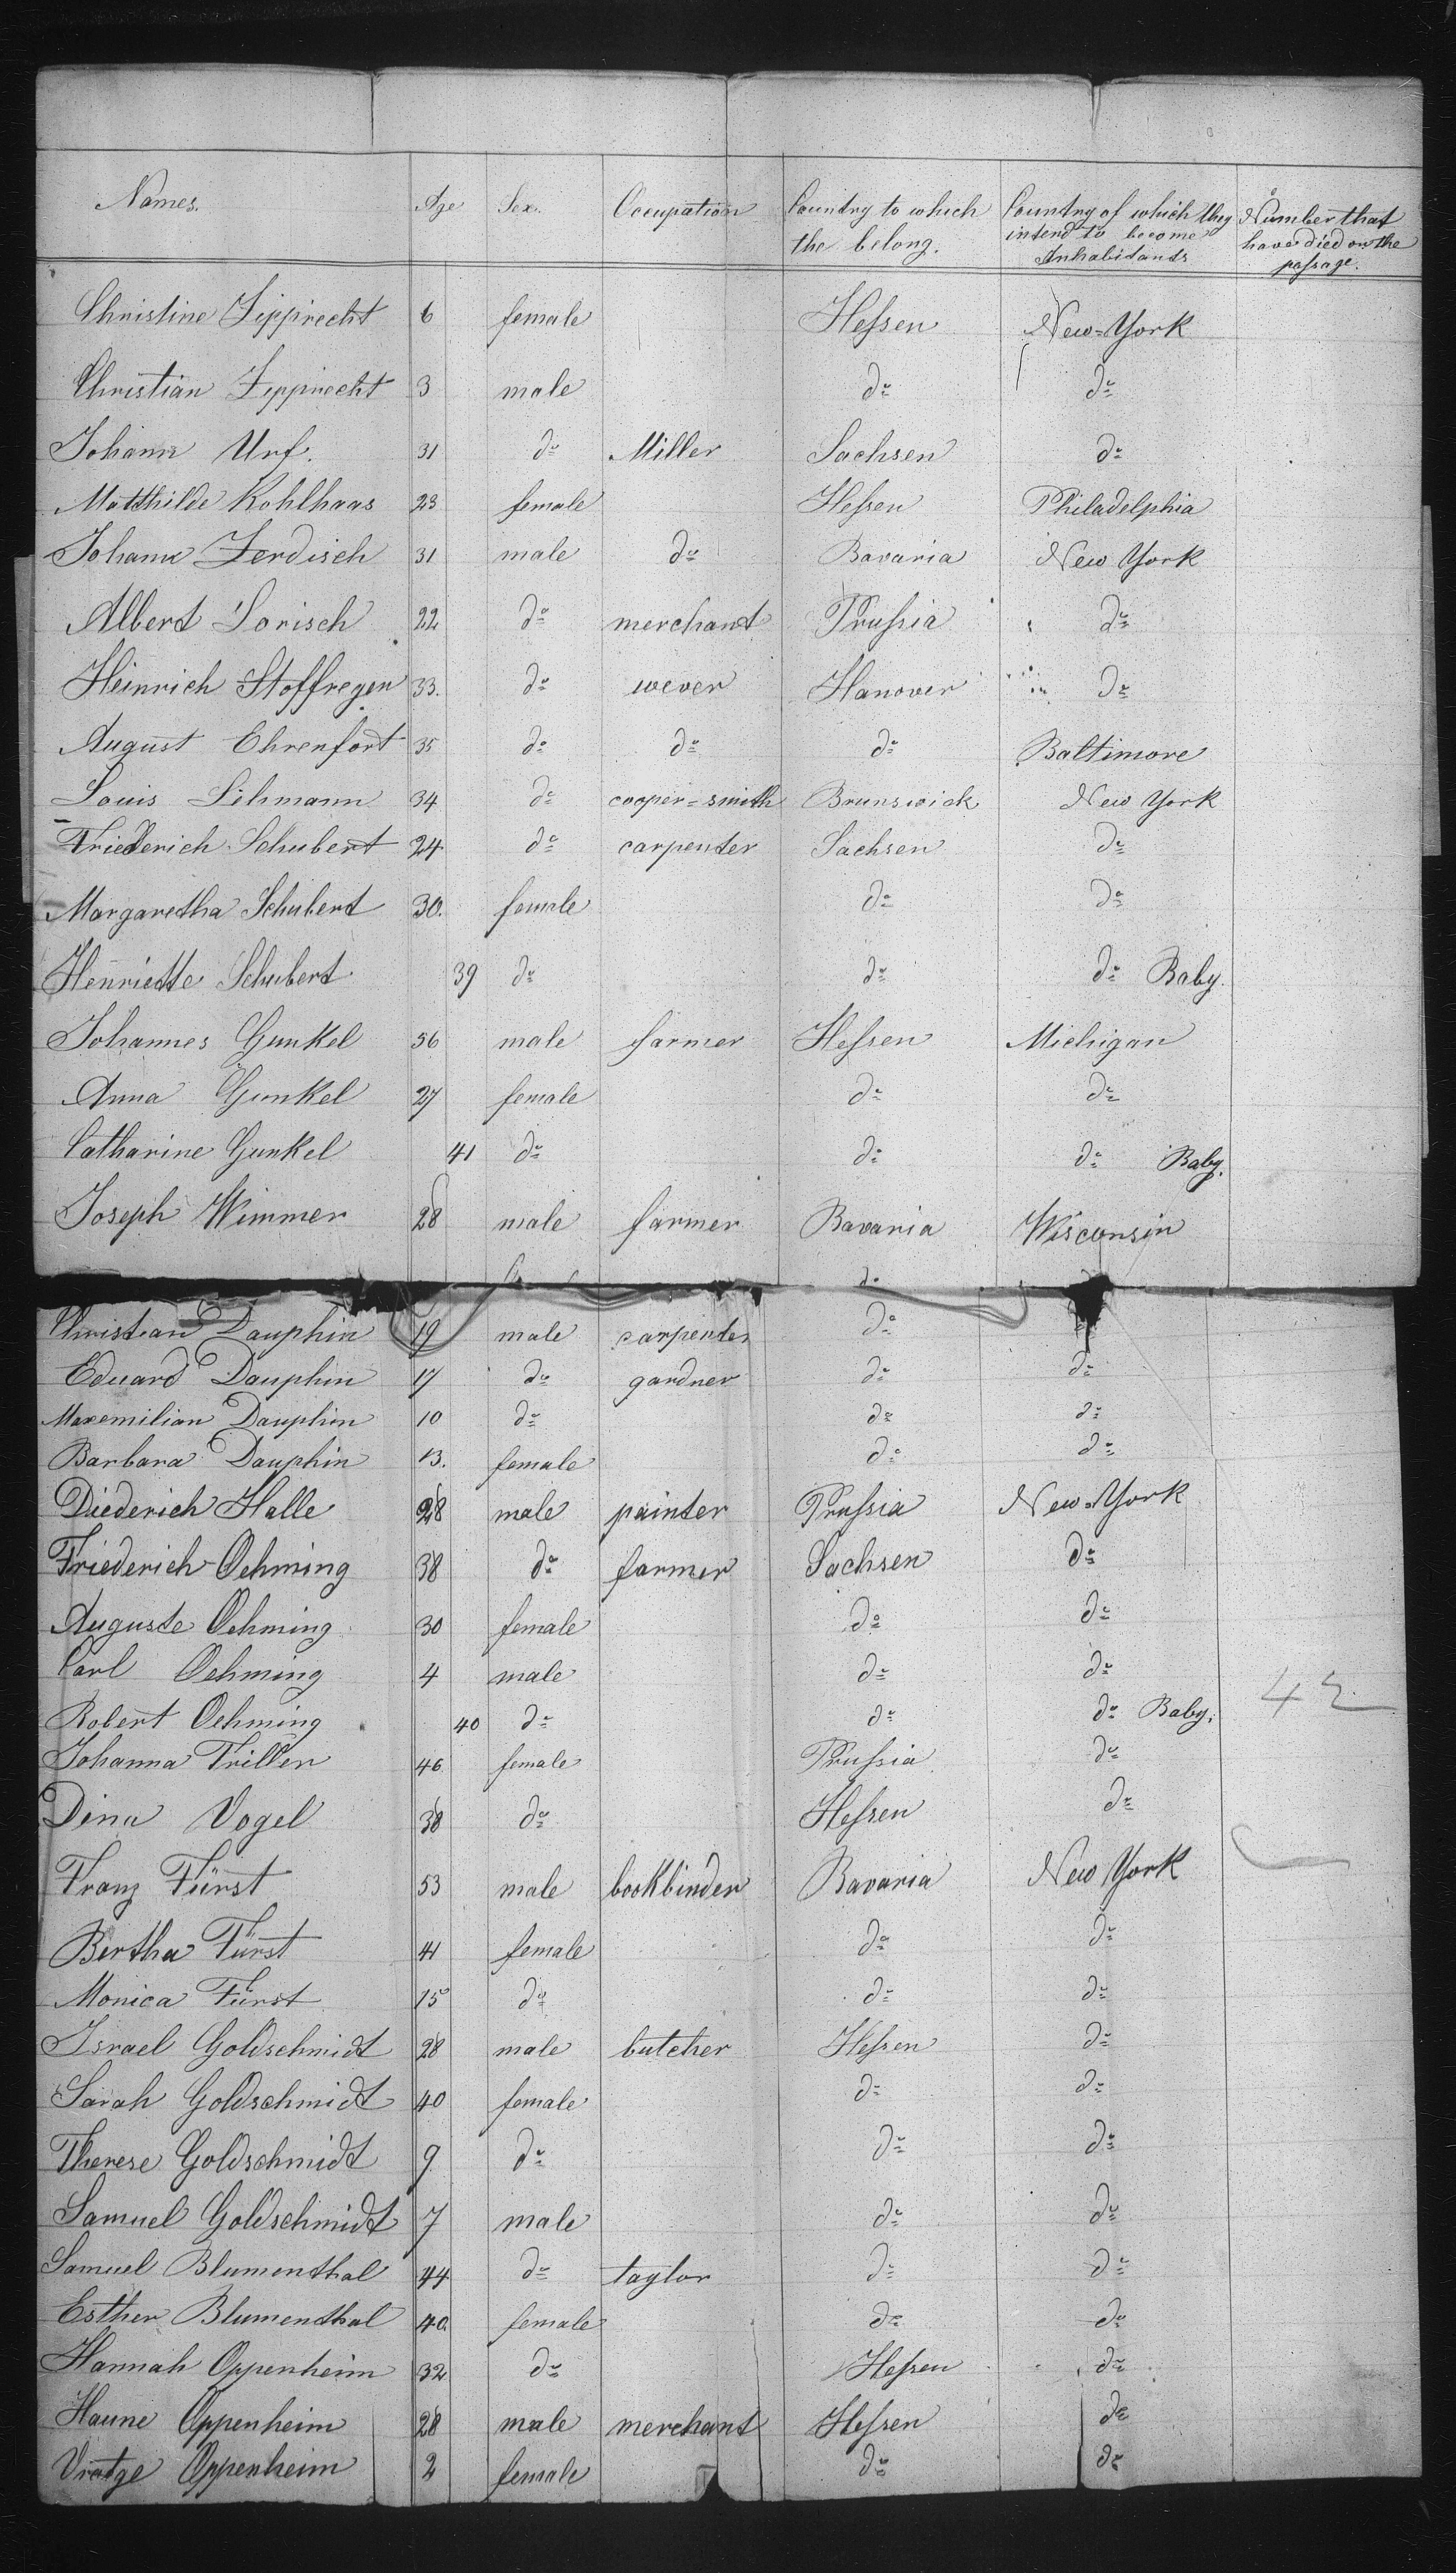 Names. Age Sex. Occupation Country to which the belong. Country of which they intend to become Inhabitants Number that have died on the passage.
Christine Zipprecht 6 female Hessen New-York
Christian Zipprecht 3 male do do
Johann Urf. 31 do Miller Sachsen do
Matthilde Kohlhaas 23 female Hessen Philadelphia
Johann Zerdisch 31 male do Bavaria New York
Albert Lorisch 22 do merchant Prussia do
Heinrich Stoffregen 33. do wever Hanover do
August Ehrenfort 35 do do do Baltimore
Louis Lihmann 34 do cooper=smith Brunswick New York
Friederich Schubert 24 do carpenter Sachsen do
Margaretha Schubert 30. female do do
Henriette Schubert 39 do do do Baby.
Johannes Gunkel 56 male farmer Hessen Michigan
Anna Gunkel 27 female do do
Catharine Gunkel 41 do do do Baby.
Joseph Wimmer 28 male farmer Bavaria Wisconsin
do
Christian Dauphin 19 male carpenter do
Eduard Dauphin 17 do gardner do do
Maxemilian Dauphin 10 do do do
Barbara Dauphin 13. female do do
Diederich Halle 28 male painter Prussia New-York
Friederich Oehming 38 do farmer Sachsen do
Auguste Oehming 30 female do do
Carl Oehming 4 male do do
Robert Oehming 40 do do do Baby. 42
Johanna Triller 46 female Prussia do
Dina Vogel 38 do Hessen do
Franz Fürst 53 male bookbinder Bavaria New York
Bertha Fürst 41 female do do
Monica Fürst 15 do do do
Israel Goldschmidt 28 male butcher Hessen do
Sarah Goldschmidt 40 female do do
Therese Goldschmidt 9 do do do
Samuel Goldschmidt 7 male do do
Samuel Blumenthal 44 do taylor do do
Esther Blumenthal 40. female do do
Hannah Oppenheim 32 do Hessen do
Haune Oppenheim 28 male merchant Hessen do
Oppenheim 2 female do do